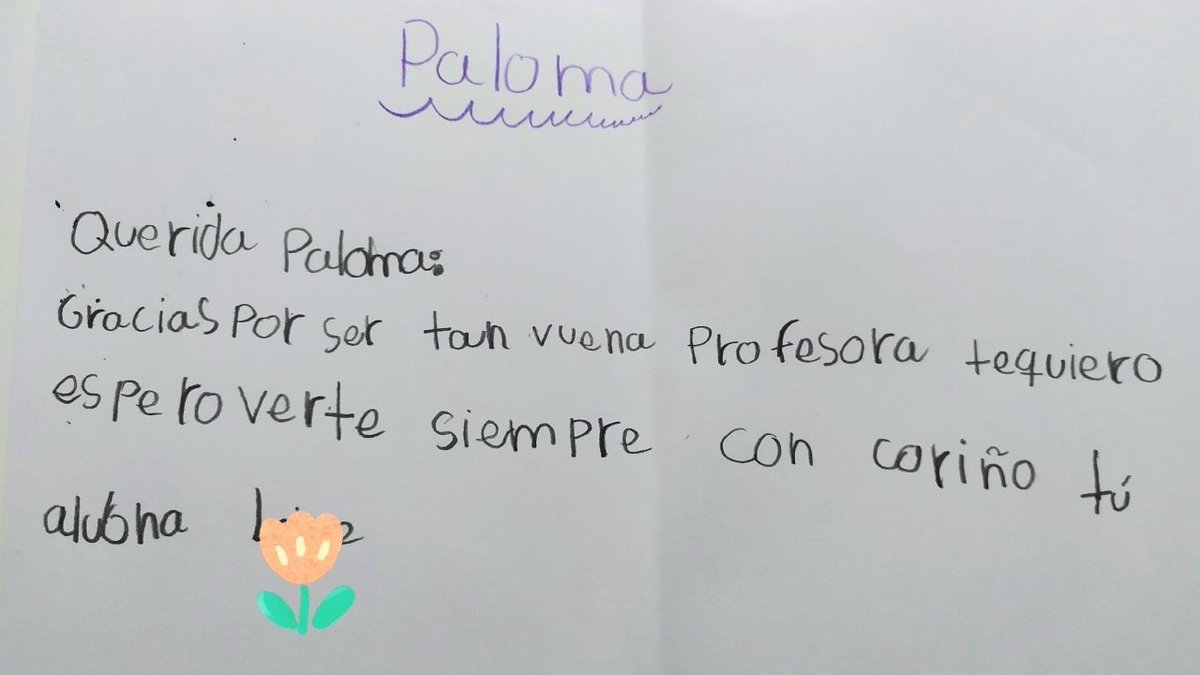 Paloma
Querida Paloma:
Gracias por ser tan vuena profesora tequiero
espero verte siempre con coriño tú
alubna